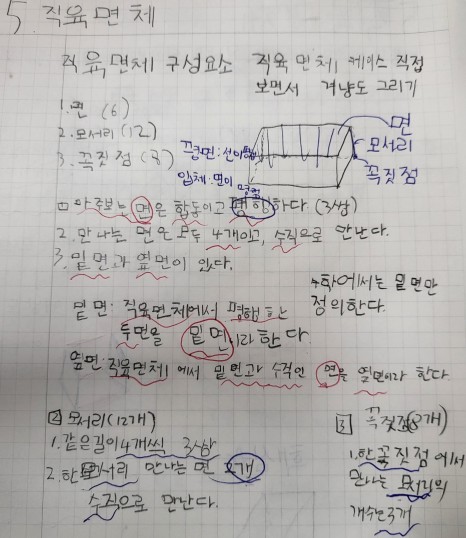 5. 직육면체
직육면체 구성요소 직육면체 케이스 직접
보면서 겨냥도 그리기
1. 면 (6)
2. 모서리 (12)
3. 꼭짓점 (8)
면
모서리
꼭짓점
평면: 선이
입체: 면이
1 마주보는 면은 합동이고 평행하다 (3쌍)
2. 만나는 면은 모두 4개이고, 수직으로 만난다.
3. 밑면과 옆면이 있다.
수학에서는 밑면만
정의한다.
밑면: 직육면체에서 평행한
두면을 밑면이라 한다.
옆면: 직육면체에서 밑면과 수직인 면을 옆면이라 한다.
2 모서리 (12개)
1. 같은길이 4개씩 3쌍
2. 한모서리 만나는 면 2개
수직으로 만난다.
3 꼭짓점(8개)
1. 한꼭짓점에서
만나는 모서리의
개수는 3개